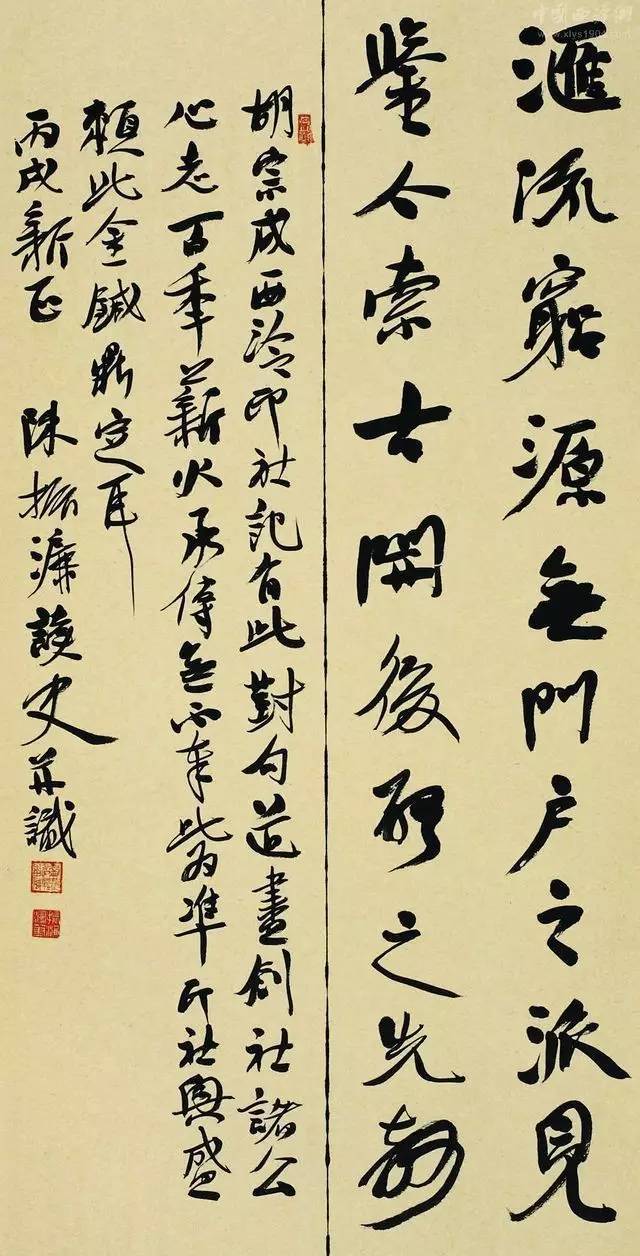 滙流窮源無門戶之派見
鑒今索古開後啟之先聲
胡宗成西泠印社記有此對句道盡創社諸公
心志百年薪火承傳無不奉此為準印社興盛
賴此金鍼鼎定耳
丙戌新正 陳振濂護史并識
中国西泠网
www.xlys1904.com